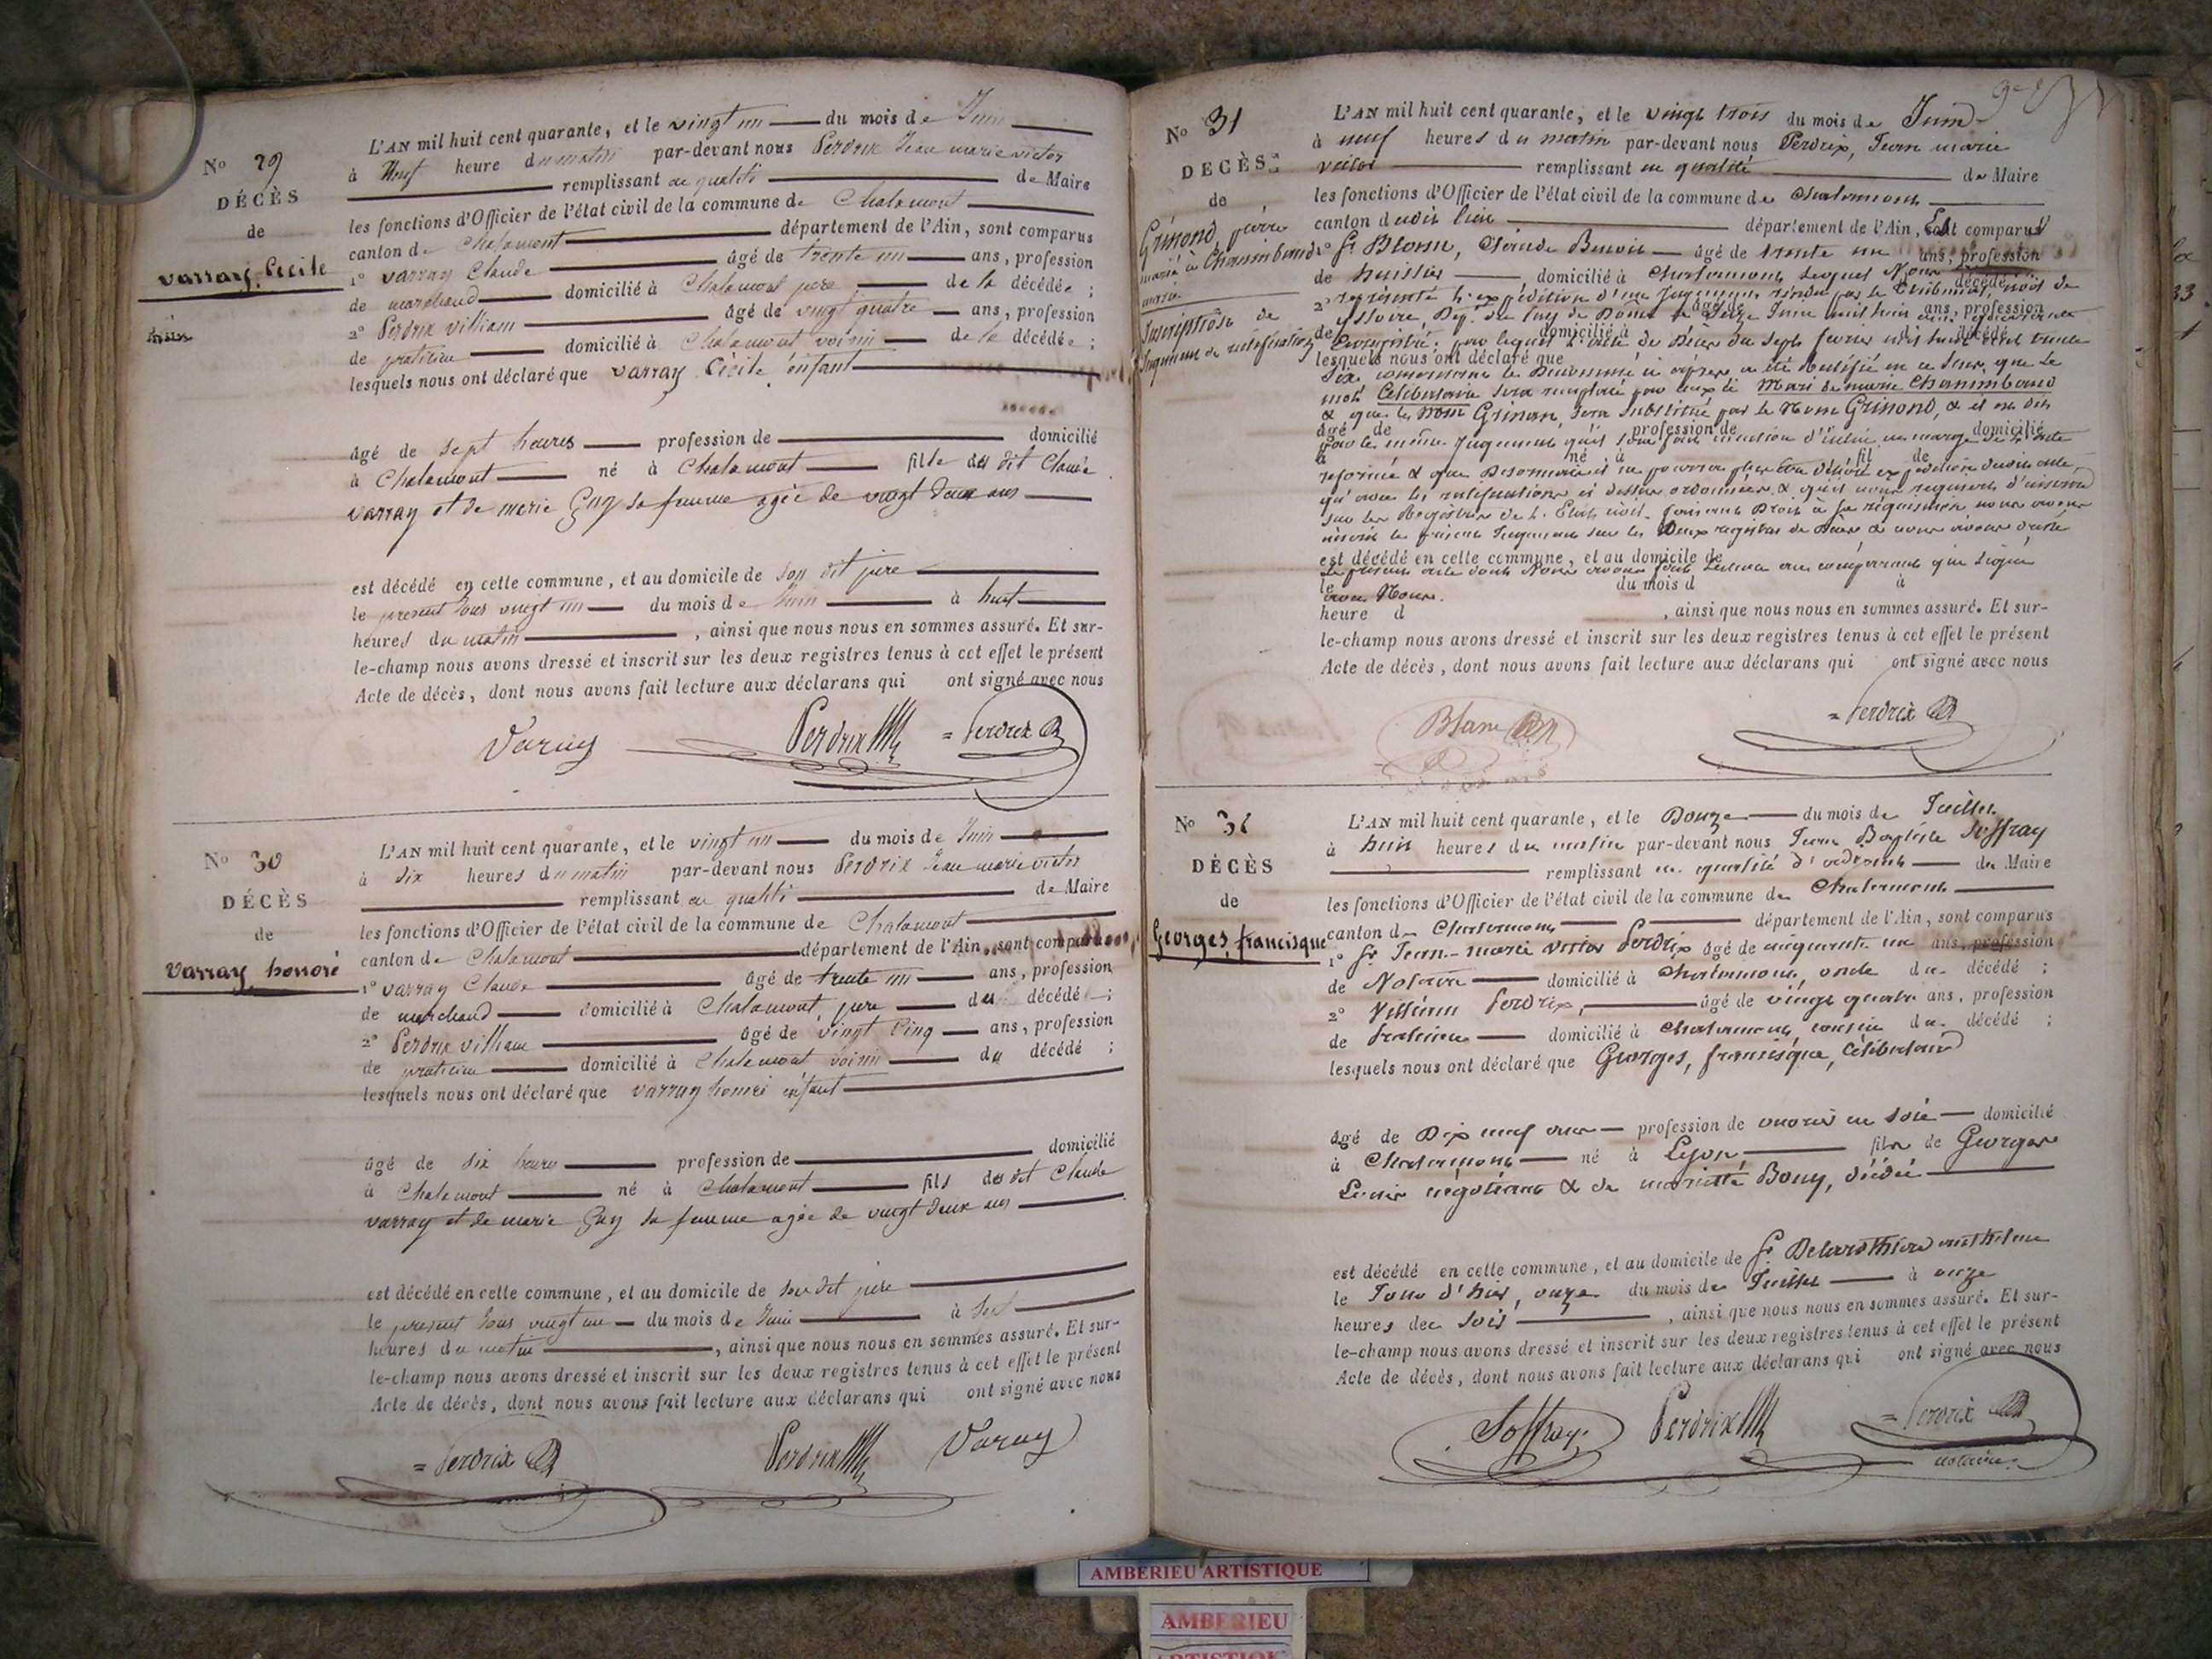 N° 29
DÉCÈS
de
varray Cécile
L'AN mil huit cent quarante, et le vingt un du mois de Juin
à Neuf heure du matin par-devant nous Perdrix Jean marie victor
remplissant en qualité de Maire
les fonctions d'Officier de l'état civil de la commune de Chalamont
canton de Chalamont département de l'Ain, sont comparus
1° varray Claude âgé de trente un ans, profession
de marchand domicilié à Chalamont père de la décédée ;
2° Perdrix villiam âgé de vingt quatre ans, profession
de praticien domicilié à Chalamont voisin de la décédée ;
lesquels nous ont déclaré que varray Cécile enfant
âgé de sept heures profession de domicilié
à Chalamont né à Chalamont fille du dit Claude
varray et de marie Guy sa femme agée de vingt deux ans
est décédé en cette commune, et au domicile de son dit père
le present Jour vingt un du mois de Juin à huit
heures du matin, ainsi que nous nous en sommes assuré. Et sur-
le-champ nous avons dressé et inscrit sur les deux registres tenus à cet effet le présent
Acte de décès, dont nous avons fait lecture aux déclarans qui ont signé avec nous
Varay Perdrix = Perdrix
N° 30
DÉCÈS
de
varray honoré
L'AN mil huit cent quarante, et le vingt un du mois de Juin
à dix heures du matin par-devant nous Perdrix Jean marie victor
remplissant en qualité de Maire
les fonctions d'Officier de l'état civil de la commune de Chalamont
canton de Chalamont département de l'Ain, sont comparus
1° varray Claude âgé de trente un ans, profession
de marchand domicilié à Chalamont, père du décédé ;
2° Perdrix villiam âgé de vingt Cinq ans, profession
de praticien domicilié à Chalamont voisin du décédé ;
lesquels nous ont déclaré que varray honoré enfant
âgé de dix heures profession de domicilié
à Chalamont né à Chalamont fils du dit Claude
varray et de marie Guy sa femme agée de vingt deux ans
est décédé en cette commune, et au domicile de son dit père
le present Jour vingt un du mois de Juin à
heures du matin, ainsi que nous nous en sommes assuré. Et sur-
le-champ nous avons dressé et inscrit sur les deux registres tenus à cet effet le présent
Acte de décès, dont nous avons fait lecture aux déclarans qui ont signé avec nous
= Perdrix Perdrix Varay
N° 31
DÉCÈS
de
Grimond, pierre
marié à Chambaud
marie
Inscription de
Jugement de rectification
L'AN mil huit cent quarante, et le vingt trois du mois de Juin
à neuf heures du matin par-devant nous Perdrix, Jean marie
victor remplissant en qualité de Maire
les fonctions d'Officier de l'état civil de la commune de Chalamont
canton dudit lieu département de l'Ain, Est comparu
1° Sr Blanc, Claude Benoit âgé de trente un ans, profession
de huissier domicilié à Chalamont lequel Nous décédé
2° représenté l'expédition d'un Jugement rendu par le tribunal civil de âgé de ans, profession
Issoire, Dép. du Puy de Dôme le Seize Juin mil huit cent quarante
de domicilié à d décédé
Enregistré, par lequel l'acte de Décès du Sept fevrier mil huit cent trente
lesquels nous ont déclaré que
Six, concernant le Dénommé ci après a été Rectifié en ce sens que le
mot Célibataire sera remplacé par ceux de Mari de marie Chambaud
& que le Nom Griman, sera substitué par le Nom Grimond, & il est dit
âgé de profession de domicilié
par le même Jugement qu'il sera fait mention d'icelui en marge de l'acte
à né à fil de
reformé & que Desormais il ne pourra plus être délivré expédition dudit acte,
qu'avec les rectifications ci dessus ordonnées, &
sur les Registres de l'Etat civil. faisant Droit à sa réquisition nous avons
inscrit le présent Jugement sur les Deux registres de Décès & nous avons dressé
est décédé en cette commune, et au domicile de
Le présent acte dont Nous avons fait lecture au comparant qui a signé
le du mois d à
avec Nous.
heure d , ainsi que nous nous en sommes assuré. Et sur-
le-champ nous avons dressé et inscrit sur les deux registres tenus à cet effet le présent
Acte de décès, dont nous avons fait lecture aux déclarans qui ont signé avec nous
Blanc = Perdrix
N° 32
DÉCÈS
de
Georges, francisque
L'AN mil huit cent quarante, et le Douze du mois de Juillet
à huit heures du matin par-devant nous Jean Baptiste Soffray
remplissant en qualité d'adjoint du Maire
les fonctions d'Officier de l'état civil de la commune de Chalamont
canton de Chalamont département de l'Ain, sont comparus
1° Sr Jean-marie victor Perdrix âgé de cinquante un ans, profession
de Notaire domicilié à Chalamont, oncle du décédé ;
2° Villiam Perdrix, âgé de vingt quatre ans, profession
de Praticien domicilié à Chalamont, cousin du décédé ;
lesquels nous ont déclaré que Georges, francisque, Célibataire
âgé de Dix neuf ans profession de ouvrier en soie domicilié
à Chalamont né à Lyon, fils de Georges
Louis négotiant & de mariette Bony, décédée
est décédé en cette commune, et au domicile de Sr anthelme
le Jour d'hier, onze du mois de Juillet à onze
heures du soir, ainsi que nous nous en sommes assuré. Et sur-
le-champ nous avons dressé et inscrit sur les deux registres tenus à cet effet le présent
Acte de décès, dont nous avons fait lecture aux déclarans qui ont signé avec nous
Soffray Perdrix = Perdrix
notaire
AMBERIEU ARTISTIQUE
AMBERIEU
ARTISTIQUE